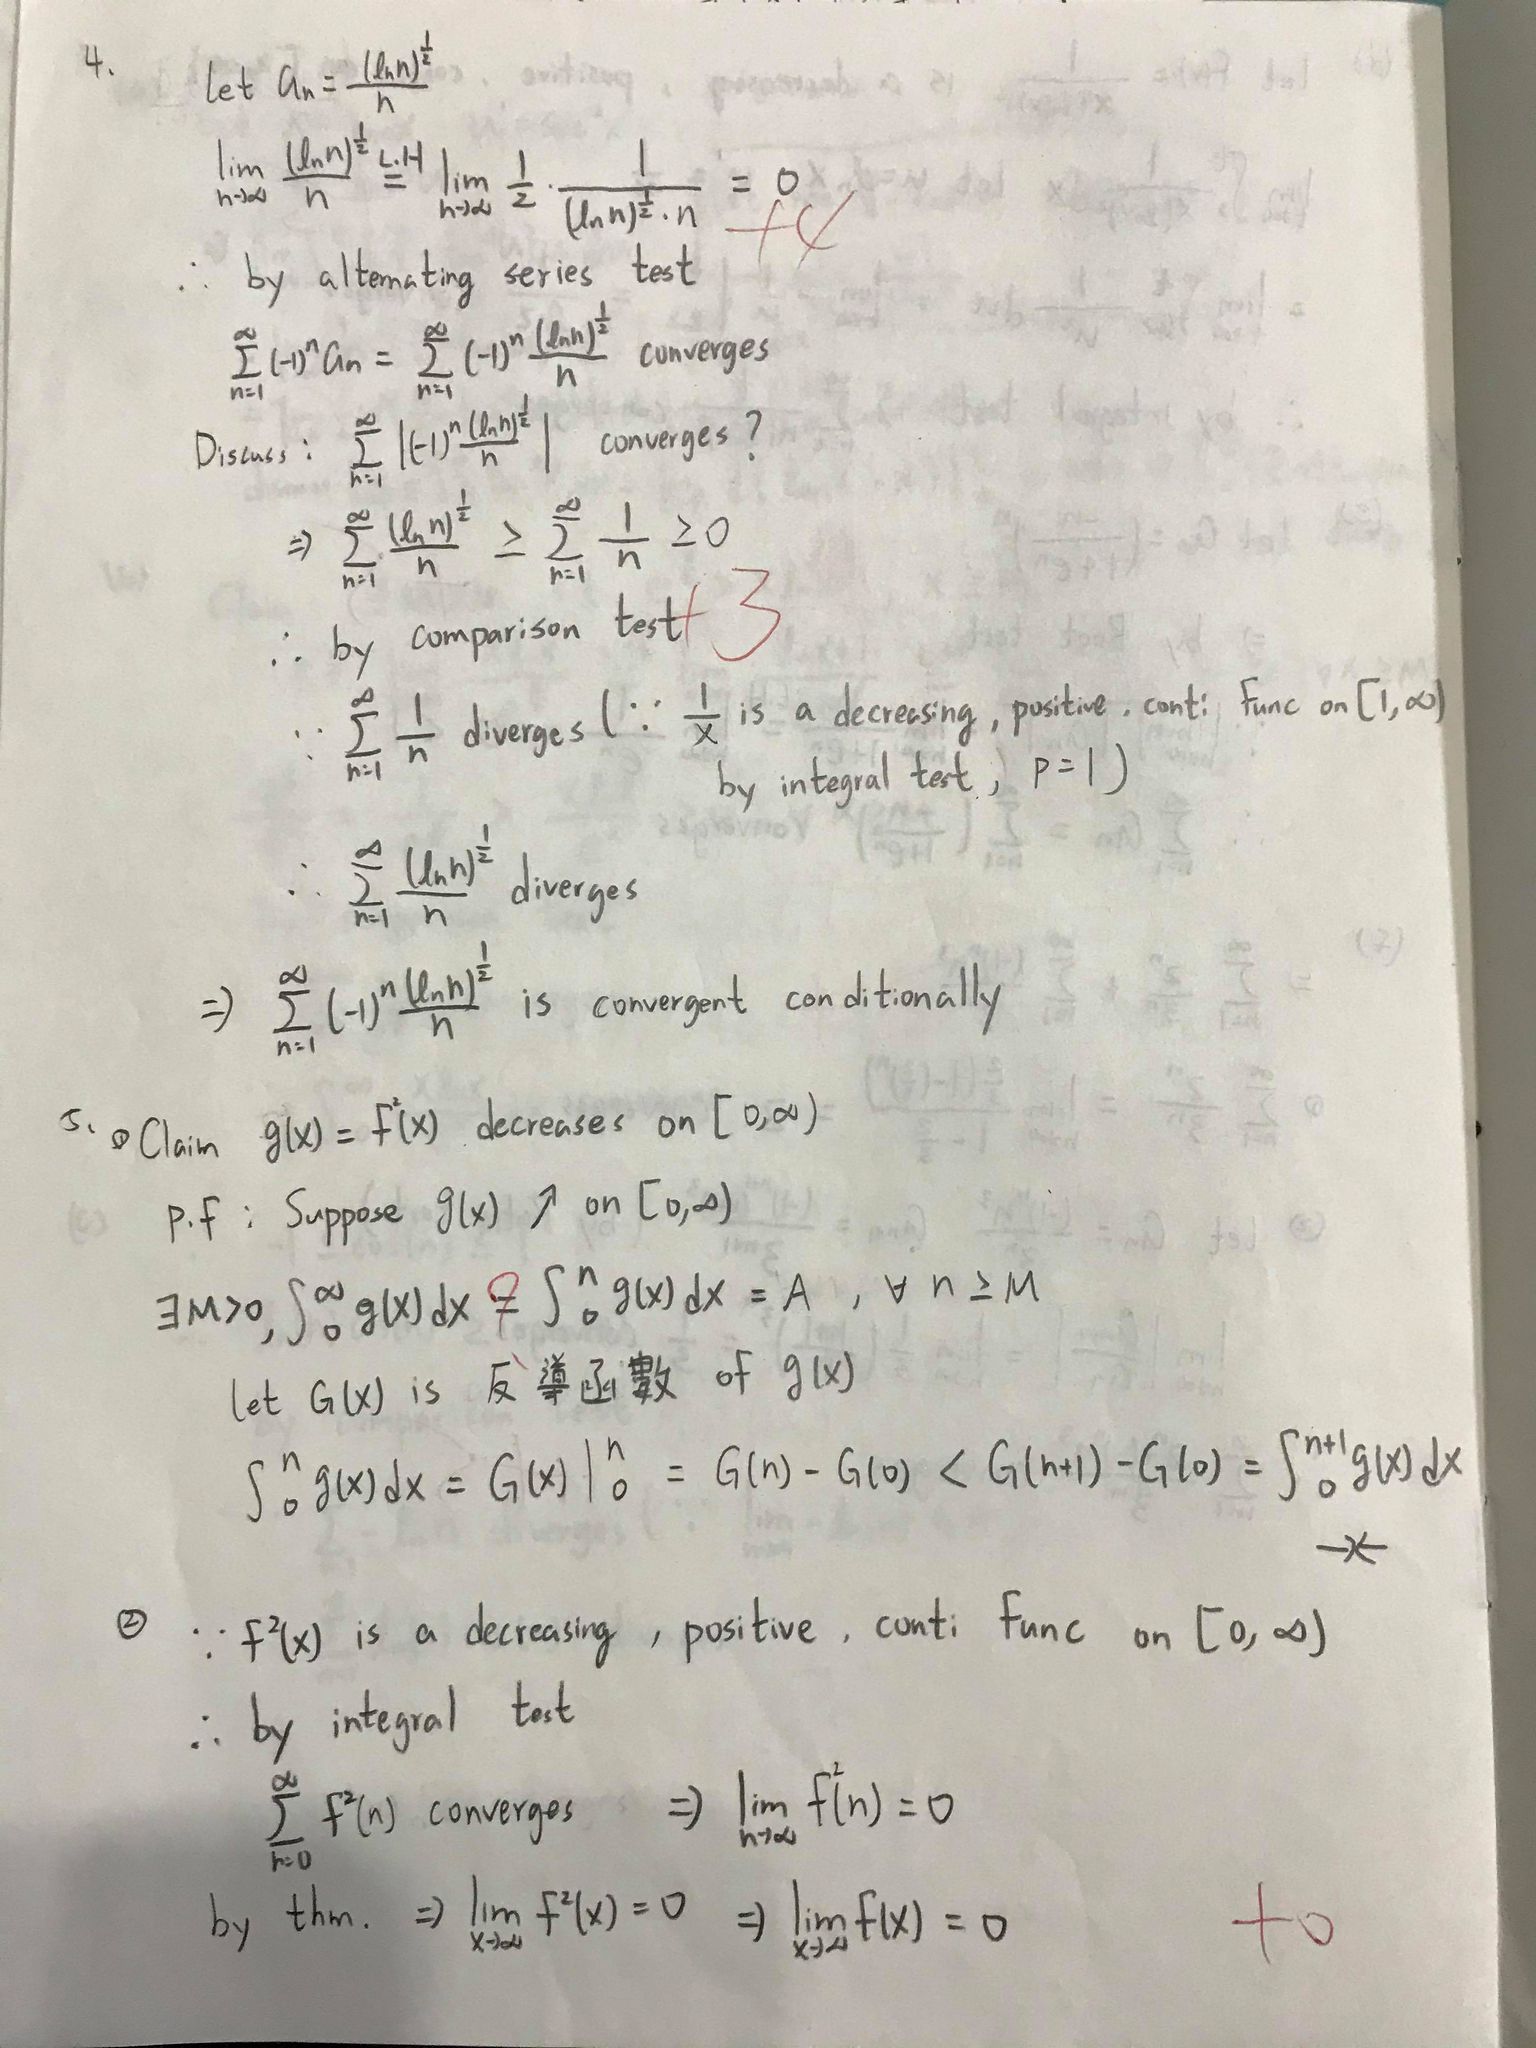 4.
Let an = (ln n)^{1/2} / n
lim_{n→∞} (ln n)^{1/2} / n =^{L.H} lim_{n→∞} 1/2 · 1 / ((ln n)^{1/2} · n) = 0
+4
∴ by alternating series test
∑_{n=1}^{∞} (-1)^n an = ∑_{n=1}^{∞} (-1)^n (ln n)^{1/2} / n converges
Discuss : ∑_{n=1}^{∞} |(-1)^n (ln n)^{1/2} / n| converges ?
⇒ ∑_{n=1}^{∞} (ln n)^{1/2} / n ≥ ∑_{n=1}^{∞} 1/n ≥ 0
∴ by comparison test +3
∵ ∑_{n=1}^{∞} 1/n diverges (∵ 1/x is a decreasing, positive, conti func on [1,∞)
by integral test, p=1)
∴ ∑_{n=1}^{∞} (ln n)^{1/2} / n diverges
⇒ ∑_{n=1}^{∞} (-1)^n (ln n)^{1/2} / n is convergent conditionally
5. ① Claim g(x) = f²(x) decreases on [0,∞)
p.f : Suppose g(x) ↗ on [0,∞)
∃M>0, ∫_0^∞ g(x)dx = ∫_0^n g(x)dx = A , ∀ n ≥ M
?
let G(x) is 反導函數 of g(x)
∫_0^n g(x)dx = G(x) |_0^n = G(n) - G(0) < G(n+1) - G(0) = ∫_0^{n+1} g(x)dx
→←
② ∵ f²(x) is a decreasing, positive, conti func on [0,∞)
∴ by integral test
∑_{n=0}^{∞} f²(n) converges ⇒ lim_{n→∞} f²(n) = 0
by thm. ⇒ lim_{x→∞} f²(x) = 0 ⇒ lim_{x→∞} f(x) = 0
+0